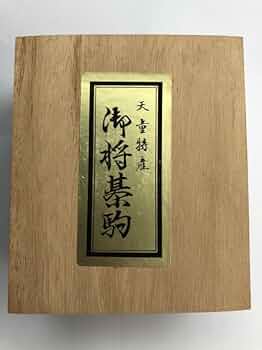 天童特産
御将棊駒